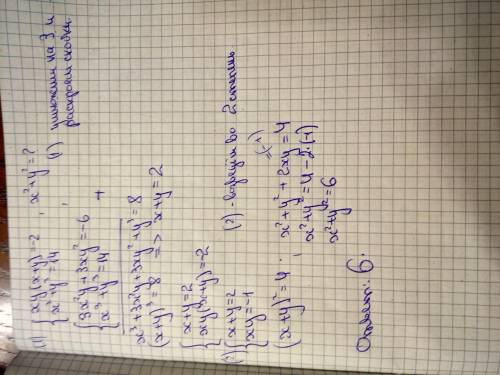 (1) { xy(x+y)=-2 ; x²+y²=?
{ x³+y³=14 ; (1) умножим на 3 и
раскроем скобки
{ 3x²y+3xy²=-6
{ x³+y³=14 +
x³+3x²y+3xy²+y³=8
(x+y)³=8 => x+y=2
{ x+y=2
{ xy(x+y)=-2
(2) { x+y=2 (2) - возведём во 2 степень
{ xy=-1
(x+y)²=4 ; x²+y²+2xy=4
(-1)
x²+y²=4-2·(-1)
x²+y²=6
Ответ: 6.